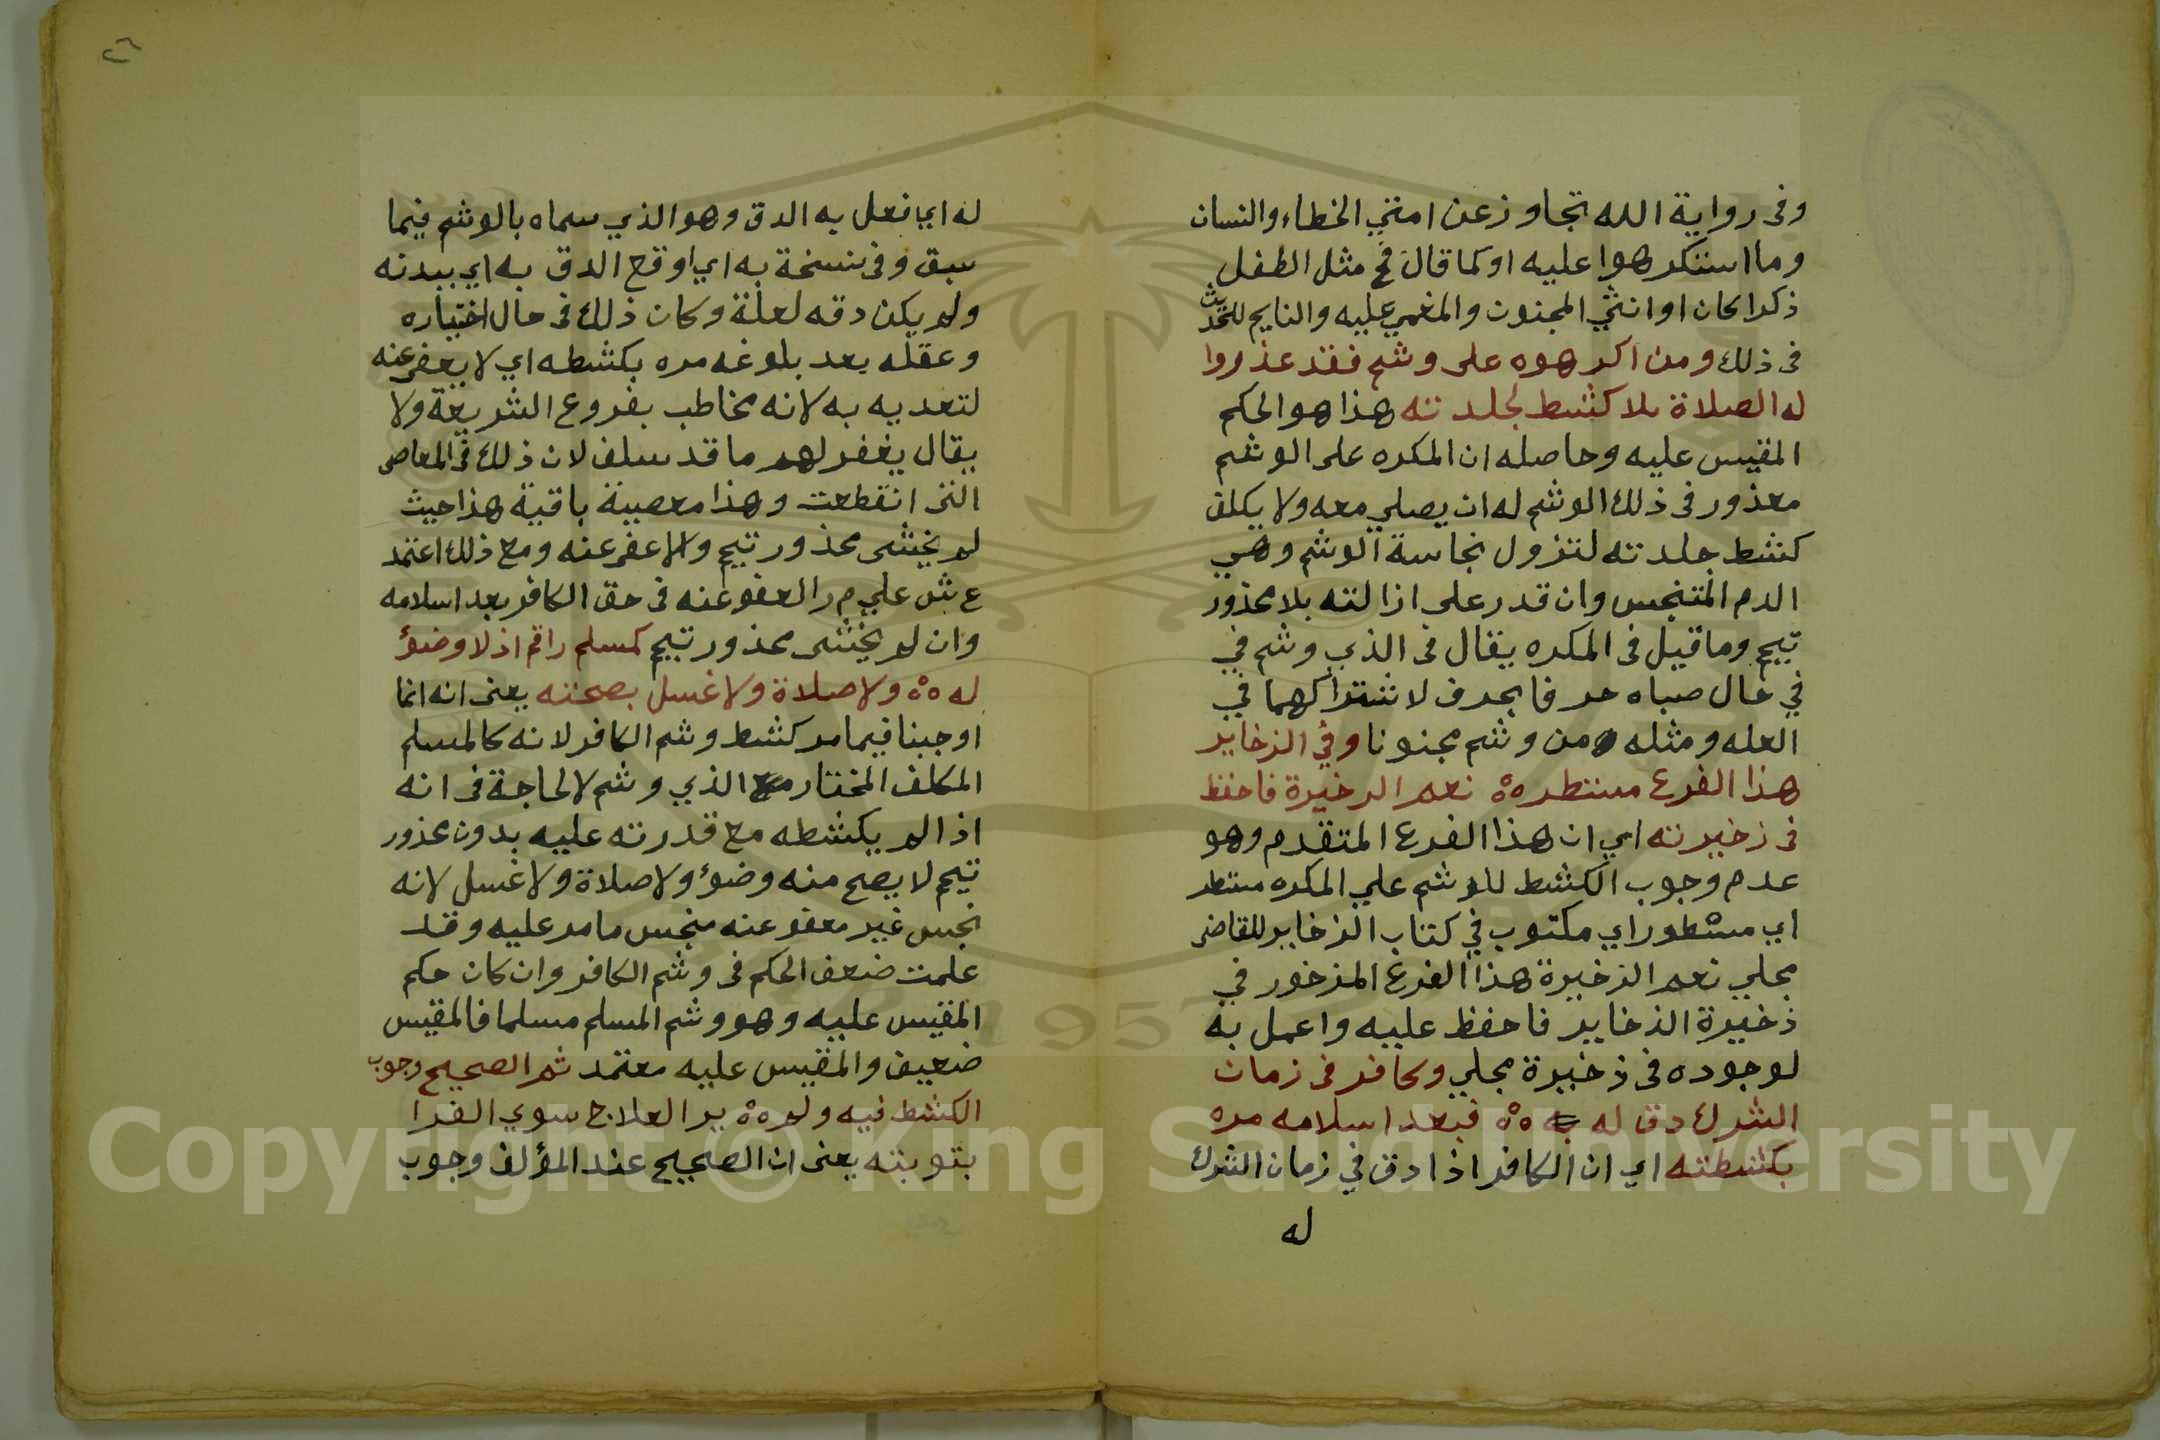 وفى رواية الله تجاوز عن امتي الخطاء والنسان
وما استكرهوا عليه او كما قال فح مثل الطفل
ذكرا كان او انثي المجنون والمغمي عليه والنايم للحديث
فى ذلك ومن اكرهوه على وشم فقد عذروا
له الصلاة بلا كشط لجلدته هذا هو الحكم
المقيس عليه وحاصله ان المكره على الوشم
معذور فى ذلك الوشم له ان يصلي معه ولا يكلف
كشط جلدته لتزول نجاسة الوشم وهي
الدم المتنجس وان قدر على ازالته بلا محذور
تيمم وما قيل فى المكره يقال فى الذي وشم في
في حال صباه حرفا بحرف لاشتراكهما في
العله ومثله من وشم مجنونا وفي الذخاير
هذا الفرع مستطره نعم الدخيرة فاحفظ
فى ذخيرته اي ان هذا الفرع المتقدم وهو
عدم وجوب الكشط للوشم علي المكره مستطر
اي مسطور اي مكتوب في كتاب الذخاير للقاضى
مجلي نعم الذخيرة هذا الفرع المذخور في
ذخيرة الذخاير فاحفظ عليه واعمل به
لوجوده فى ذخيرة مجلي وكافر فى زمان
الشرك دق له به فبعد اسلامه مره
بكشطته اي ان الكافر اذا دق في زمان الشرك
له
٢٦
له اي فعل به الدق وهو الذي سماه بالوشم فيما
سبق وفى نسخة به اي اوقع الدق به اي ببدنه
ولم يكن دقه لعلة وكان ذلك فى حال اختياره
وعقله بعد بلوغه مره بكشطه اي لا يعفى عنه
لتعديه به لانه مخاطب بفروع الشريعة ولا
يقال يغفر لهم ما قد سلف لان ذلك فى المعاصى
التى انقطعت وهذا معصية باقية هذا حيث
لم يخشى محذور تيمم والا عفى عنه ومع ذلك اعتمد
ع ش علي م ر العفو عنه فى حق الكافر بعد اسلامه
وان لم يخشى محذور تيمم كمسلم راقم اذ لا وضؤ
له ولا صلاة ولا غسل بصحته يعنى انه انما
اوجبنا فيما مر كشط وشم الكافر لانه كالمسلم
المكلف المختار الذي وشم لا لحاجة فى انه
اذا لم يكشطه مع قدرته عليه بدون محذور
تيمم لا يصح منه وضؤ ولا صلاة ولا غسل لانه
نجس غير معفو عنه منجس ما مر عليه وقد
علمت ضعف الحكم فى وشم الكافر وان كان حكم
المقيس عليه وهو وشم المسلم مسلما فالمقيس
ضعيف والمقيس عليه معتمد ثم الصحيح وجوب
الكشط فيه ولم ير العلاج سوي الفرا
بتوبته يعنى ان الصحيح عند المؤلف وجوب
1957
Copyright © King Saud University